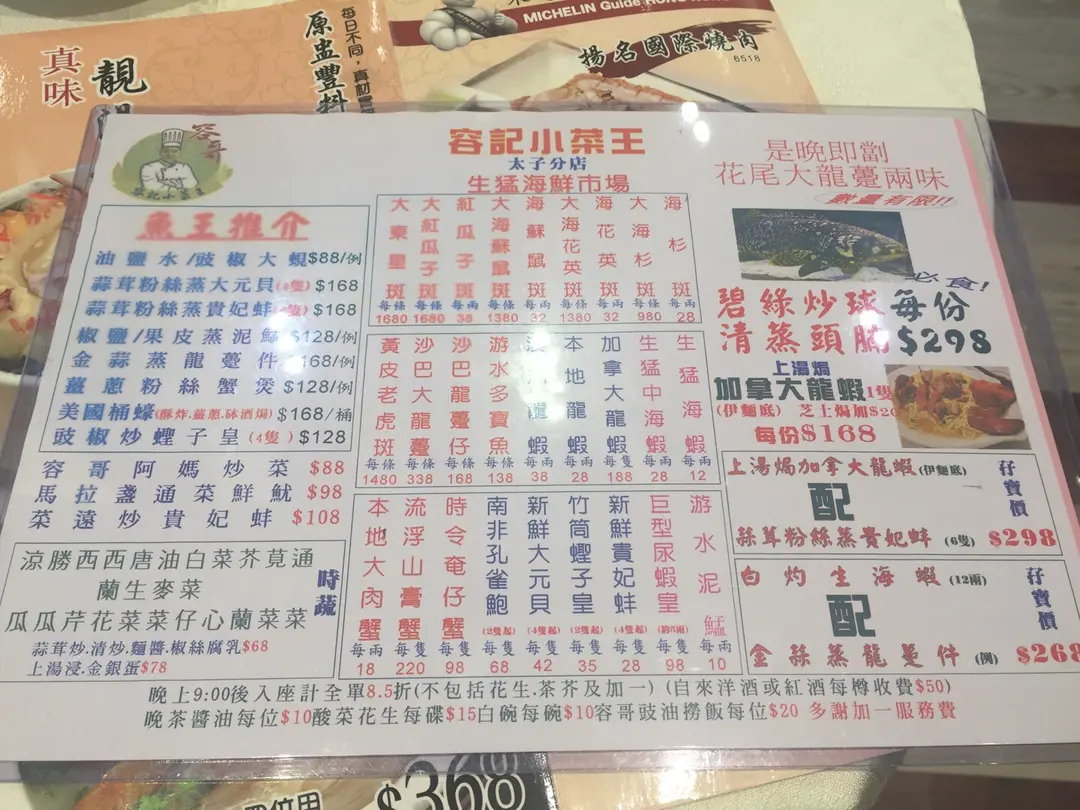 真味
靚
原盅豐料
每日不同,真材實
MICHELIN Guide HONG KONG
揚名國際燒肉
6518
容哥
容記小菜王
容記小菜王
太子分店
生猛海鮮市場
魚王推介
油鹽水/豉椒大蜆$88/例
蒜茸粉絲蒸大元貝(4隻)$168
蒜茸粉絲蒸貴妃蚌 $168
椒鹽/果皮蒸泥鯭$128/例
金蒜蒸龍躉件 168/例
薑蔥粉絲蟹煲$128/例
美國桶蠔(酥炸.薑蔥.砵酒焗)$168/桶
豉椒炒蟶子皇(4隻)$128
容哥阿媽炒菜 $88
馬拉盞通菜鮮魷 $98
菜遠炒貴妃蚌 $108
涼勝西西唐油白菜芥莧通
蘭生麥菜
瓜瓜芹花菜菜仔心蘭菜菜
時蔬
蒜茸炒.清炒.麵醬.椒絲腐乳$68
上湯浸.金銀蛋$78
大東星斑 每條 1680
大紅瓜子斑 每條 1680
紅瓜子斑 每兩 38
大海蘇鼠斑 每條 1380
海蘇鼠斑 每兩 32
大海花英斑 每條 1380
海花英斑 每兩 32
大海杉斑 每條 980
海杉斑 每兩 28
黃皮老虎斑 每條 1480
沙巴大龍躉 每條 338
沙巴龍躉仔 每條 168
游水多寶魚 每條 138
龍蝦 每兩 38
本地龍蝦 每兩 28
加拿大龍蝦 每隻 188
生猛中海蝦 每兩 28
生猛海蝦 每兩 12
本地大肉蟹 每兩 18
流浮山膏蟹 每隻 220
時令奄仔蟹 每隻 98
南非孔雀鮑 (2隻起) 每隻 68
新鮮大元貝 (4隻起) 每隻 42
竹筒蟶子皇 (2隻起) 每隻 35
新鮮貴妃蚌 (4隻起) 每隻 28
巨型尿蝦皇 (約5兩) 每隻 98
游水泥鯭 每兩 10
是晚即劏
花尾大龍躉兩味
數量有限!!
必食!
碧綠炒球
清蒸頭腩
每份
$298
上湯焗
加拿大龍蝦1隻
(伊麵底) 芝士焗加$20
每份$168
上湯焗加拿大龍蝦(伊麵底)
配
蒜茸粉絲蒸貴妃蚌 (6隻) $298
孖寶價
白灼生海蝦(12兩)
配
金蒜蒸龍躉件 (例) $268
孖寶價
晚上9:00後入座計全單8.5折(不包括花生.茶芥及加一) (自來洋酒或紅酒每樽收費$50)
晚茶醬油每位$10酸菜花生每碟$15白碗每碗$10容哥豉油撈飯每位$20 多謝加一服務費
$368